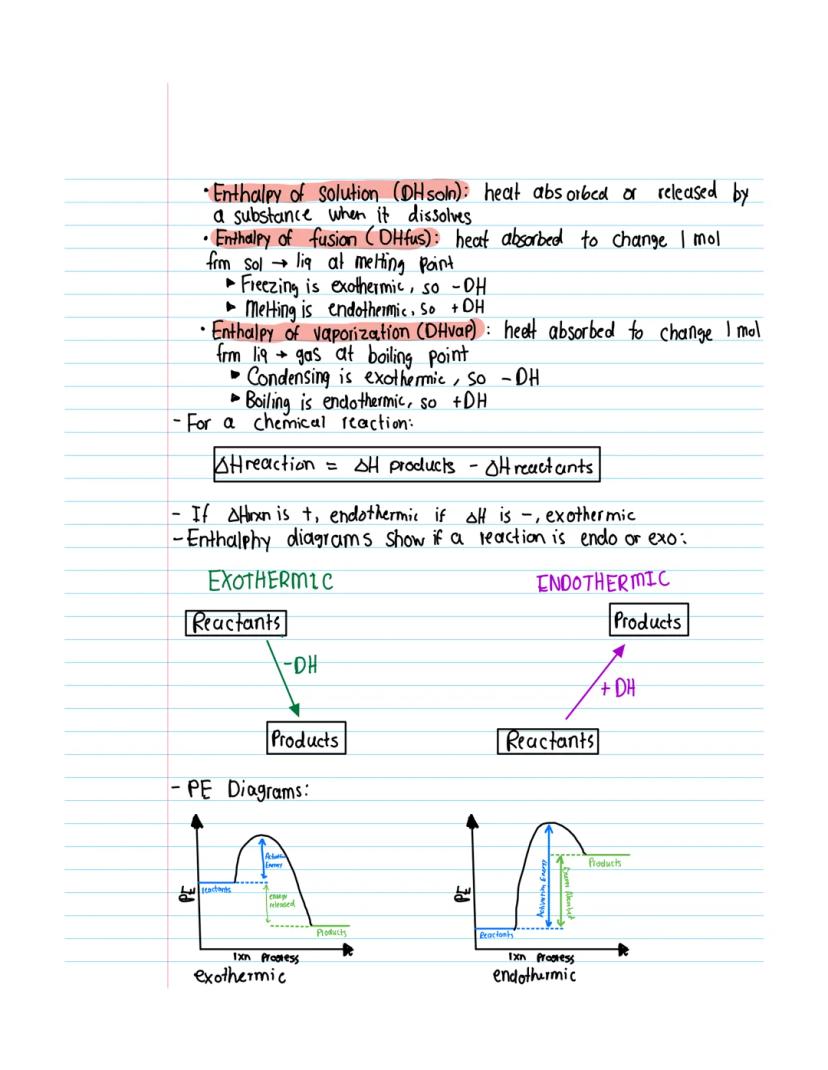 • Enthalpy of solution (DHsoln): heat absorbed or released by
a substance when it dissolves
• Enthalpy of fusion (DHfus): heat absorbed to change 1 mol
frm sol → liq at melting point
▸ Freezing is exothermic, so -DH
▸ Melting is endothermic, so +DH
• Enthalpy of vaporization (DHvap): heat absorbed to change 1 mol
frm liq → gas at boiling point
▸ Condensing is exothermic, so -DH
▸ Boiling is endothermic, so +DH
- For a chemical reaction:
ΔHreaction = ΔH products - ΔHreactants
- If ΔHrxn is +, endothermic if ΔH is -, exothermic
- Enthalphy diagrams show if a reaction is endo or exo:
EXOTHERMIC
Reactants
-DH
Products
ENDOTHERMIC
Products
+DH
Reactants
- PE Diagrams:
PE
reactants
Energy
energy
released
Products
rxn Progress
exothermic
PE
Reactants
Activation Energy
Products
rxn Progress
endothermic